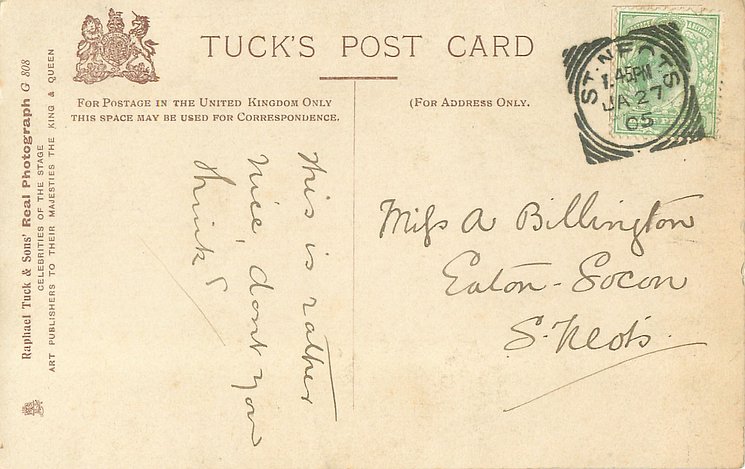 TUCK'S POST CARD
FOR POSTAGE IN THE UNITED KINGDOM ONLY
THIS SPACE MAY BE USED FOR CORRESPONDENCE.
(FOR ADDRESS ONLY.
ST. NEOTS
1.45PM
JA 27
05
Raphael Tuck & Sons' Real Photograph G 808
CELEBRITIES OF THE STAGE
ART PUBLISHERS TO THEIR MAJESTIES THE KING & QUEEN
This is rather
nice, dont you
think?
Miss A Billington
Eaton-Socon
St. Neots.